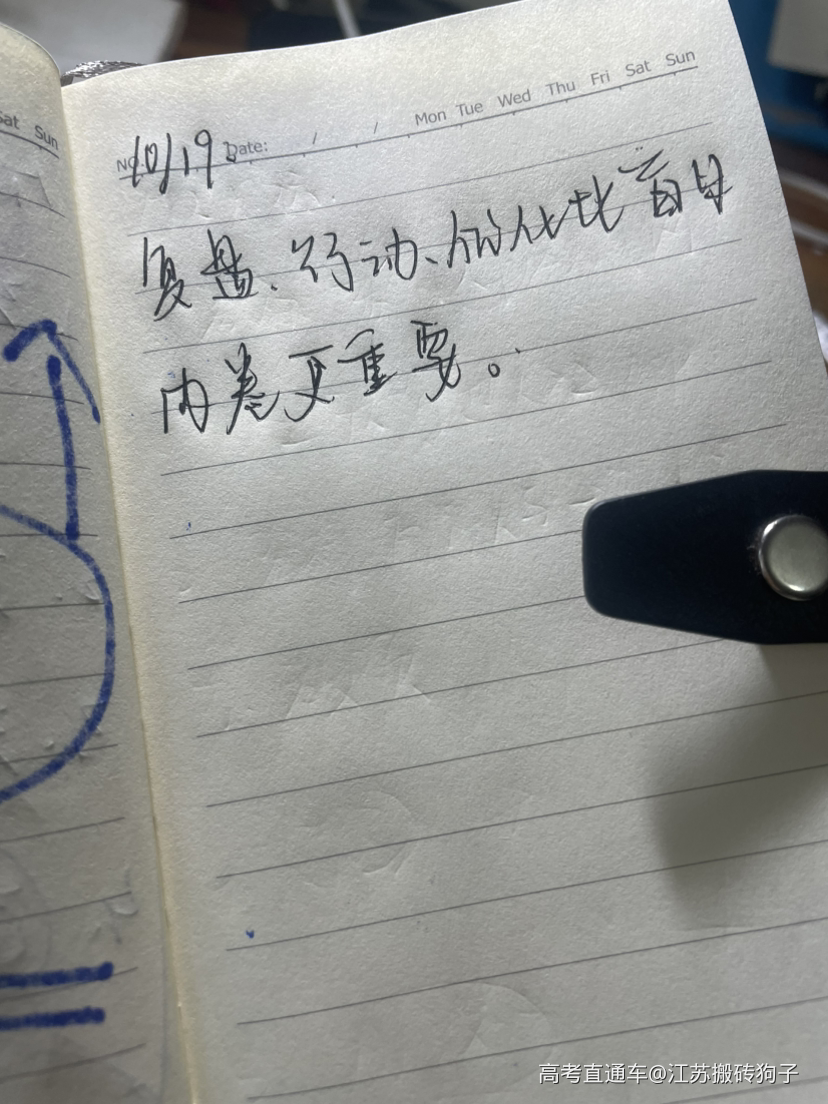 Sat Sun
NO. 10/19 Date: / / Mon Tue Wed Thu Fri Sat Sun
复盘、行动、优化比盲目
内卷更重要。
高考直通车@江苏搬砖狗子